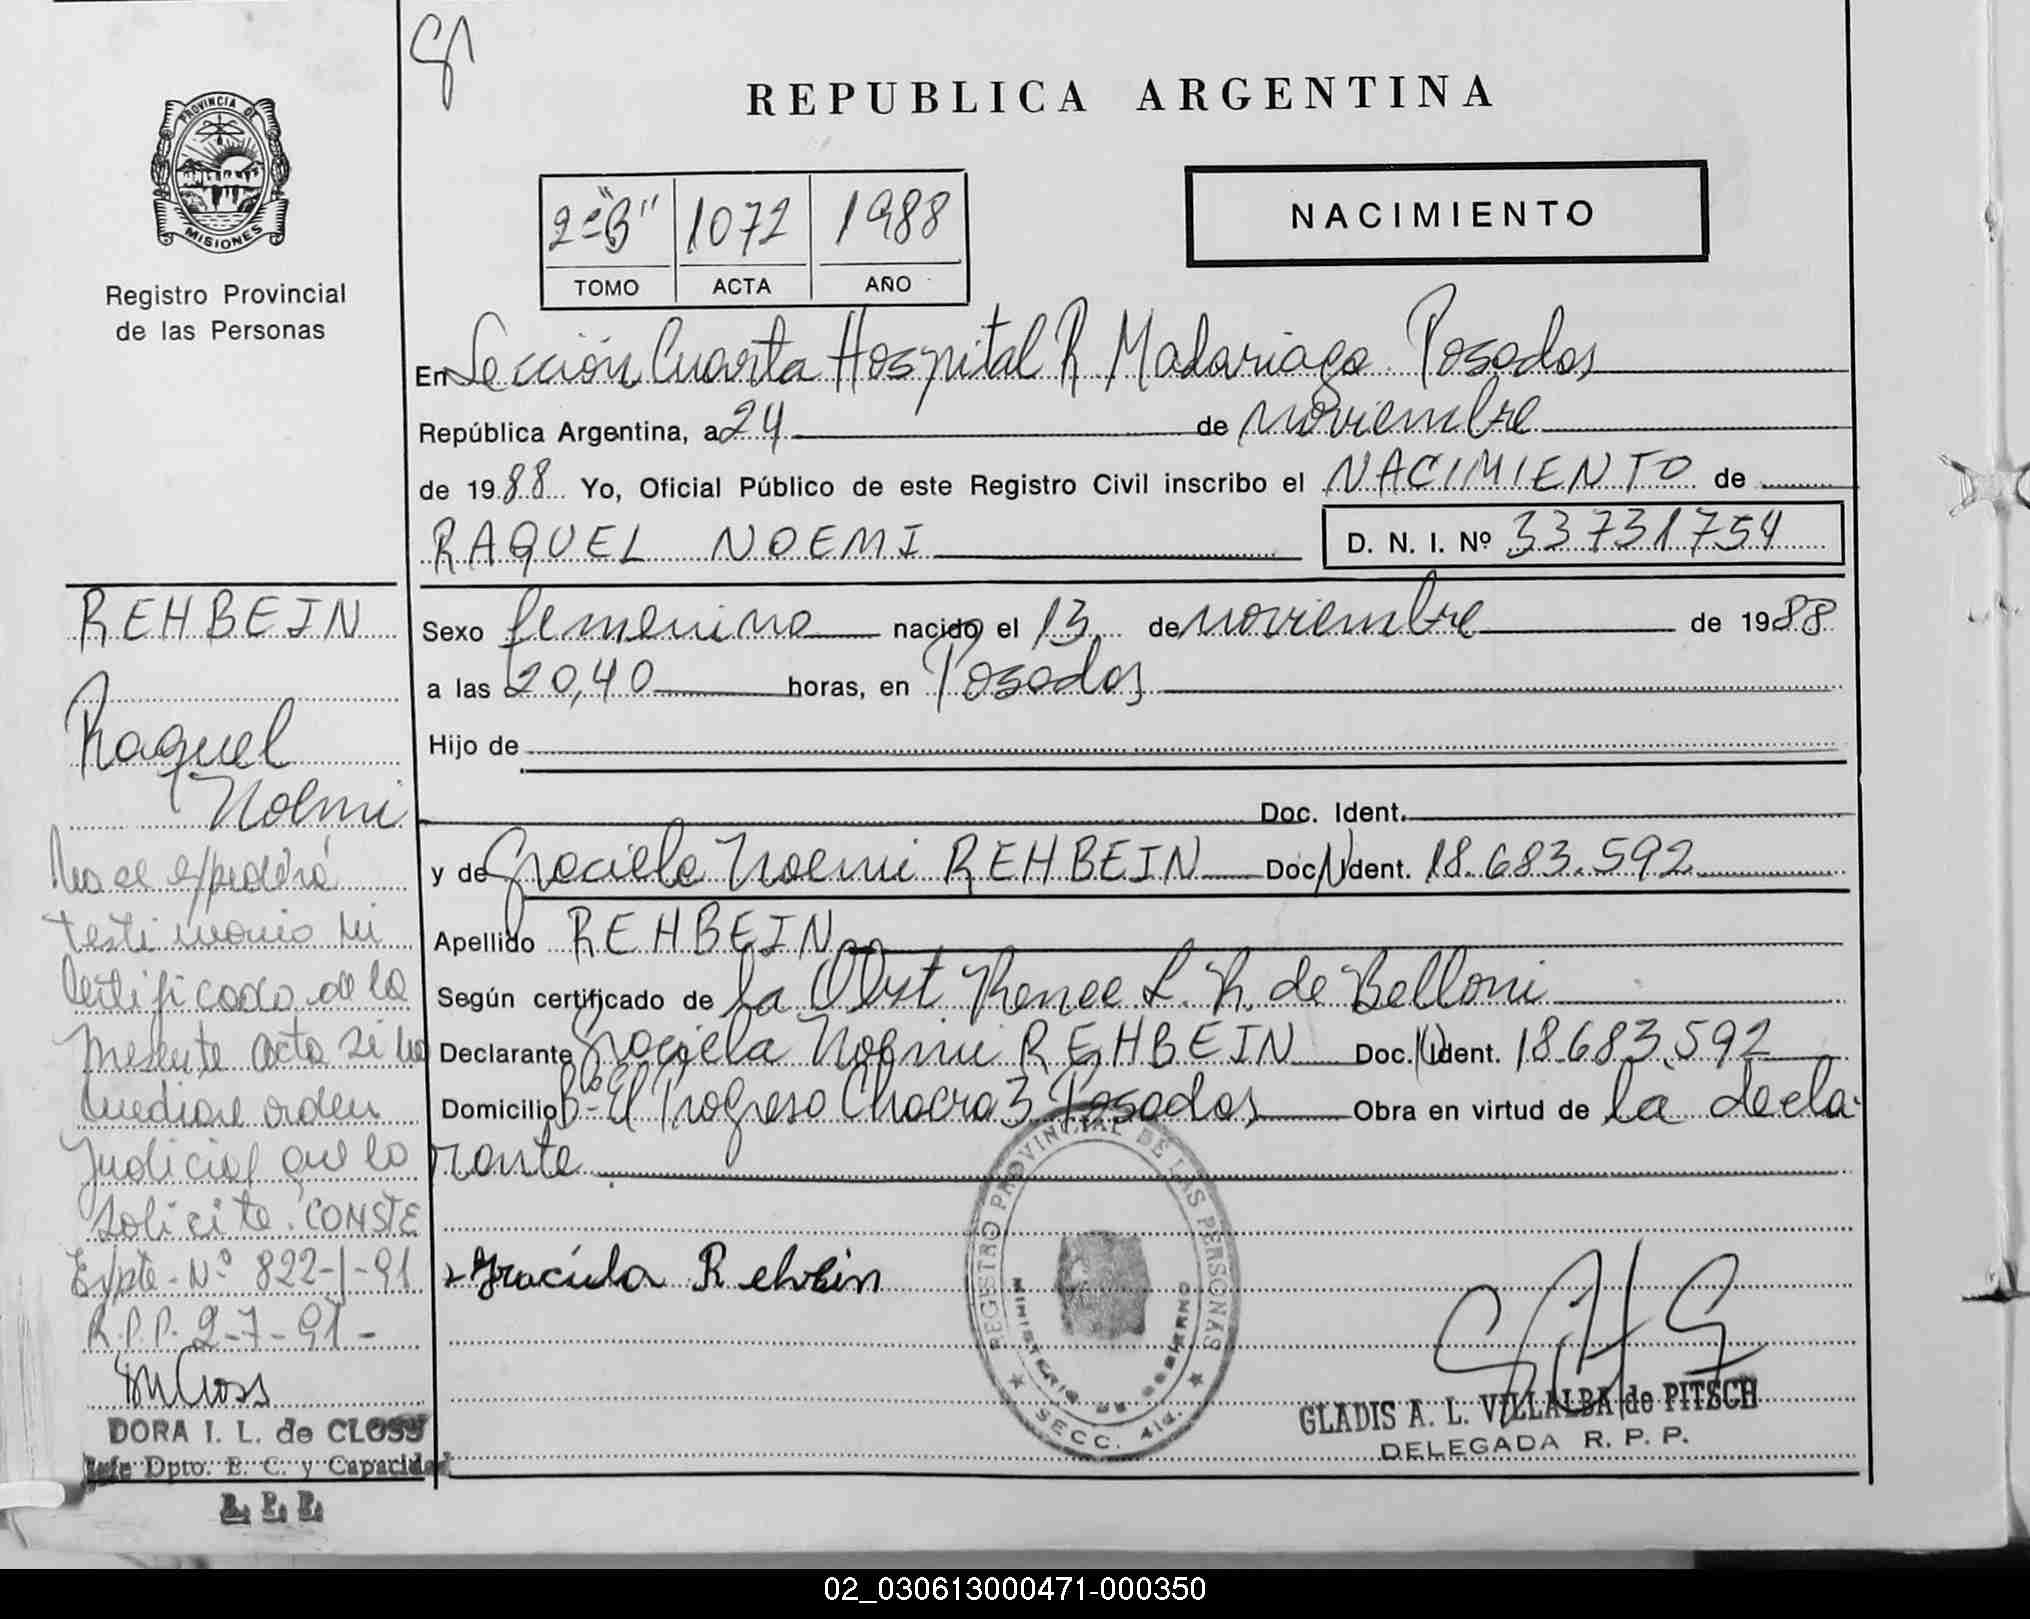 REPUBLICA ARGENTINA
PROVINCIA DE
MISIONES
Registro Provincial
de las Personas
2º "B" 1072 1988
TOMO ACTA AÑO
NACIMIENTO
En Sección Cuarta Hospital R Madariaga Posadas
República Argentina, a 24 de noviembre
de 1988 Yo, Oficial Público de este Registro Civil inscribo el NACIMIENTO de
RAQUEL NOEMI D. N. I. Nº 33731754
Sexo femenino nacido el 13 de noviembre de 1988
a las 20,40 horas, en Posadas
Hijo de
Doc. Ident.
y de Graciela Noemi REHBEIN Doc. Ident. 18.683.592
Apellido REHBEIN
Según certificado de la Obst Renee L. R. de Belloni
Declarante Graciela Noemi REHBEIN Doc. Ident. 18.683.592
Domicilio Bº El Progreso Chacra 3 Posadas Obra en virtud de la decla-
rante
Graciela Rehbein
REGISTRO PROVINCIAL DE LAS PERSONAS
MINISTERIO DE GOBIERNO
SECC. 4ta.
GLADIS A. L. VILLALBA de PITSCH
DELEGADA R. P. P.
REHBEIN
Raquel
Noemi
No se expedirá
testimonio ni
certificado de la
presente acta si no
mediare orden
Judicial que lo
solicite. CONSTE
Expte. Nº 822-J-91
R.P.P. 2-7-91-
DORA I. L. de CLOSS
Jefe Dpto. E. C. y Capacidad
R. P. P.
02_030613000471-000350